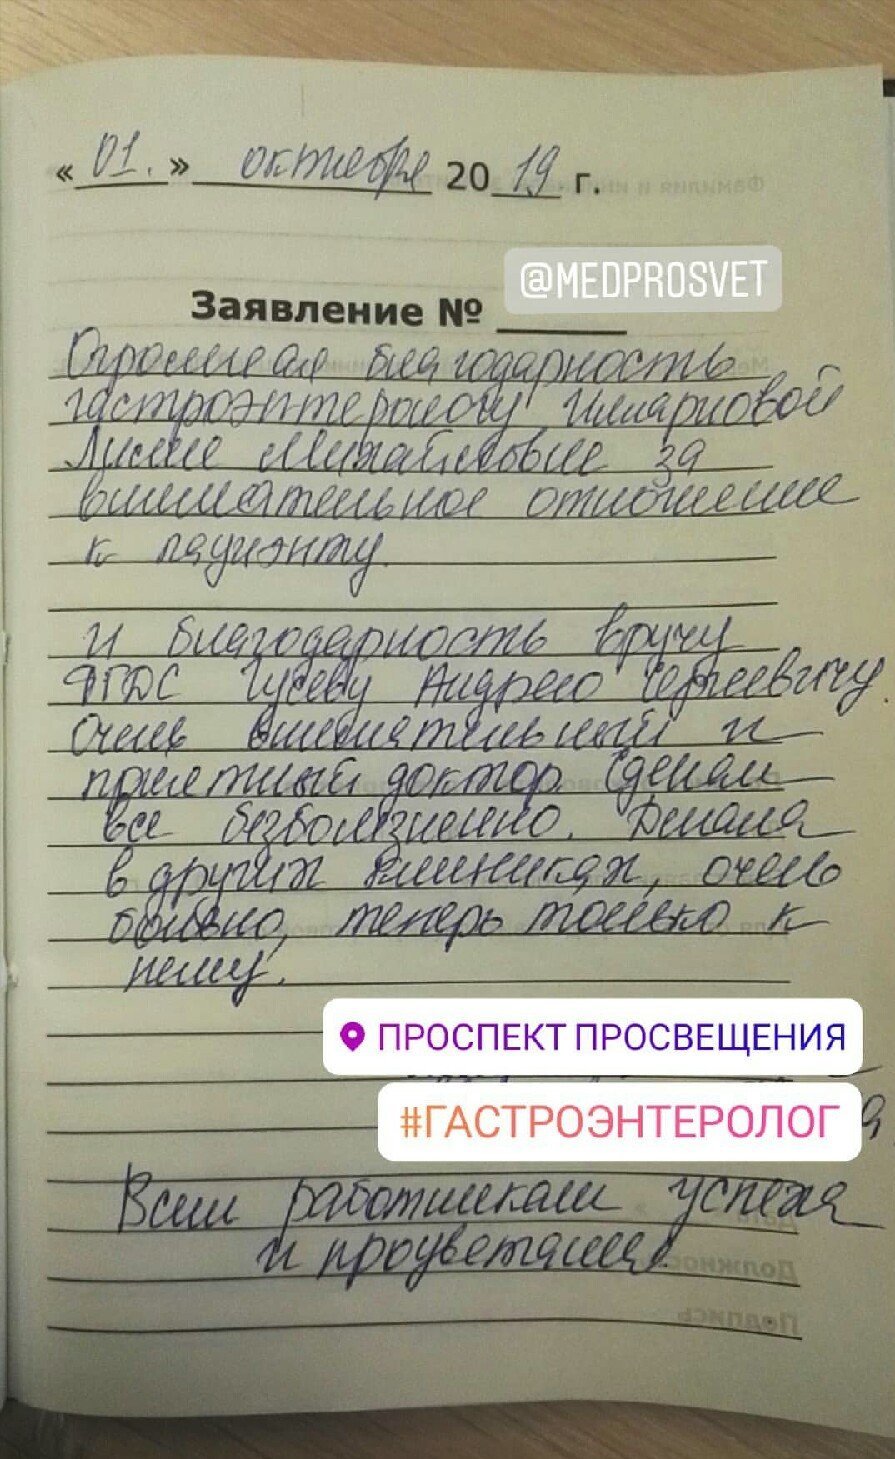 « 01. » октября 2019 г.
@MEDPROSVET
Заявление №
Огромная благодарность
гастроэнтерологу
за
внимательное отношение
к пациэнту.
и благодарность вручу
ФГДС Гусеву Андрею Сергеевичу.
Очень внимательный и
приятный доктор. Сделал
все безболезненно. Делала
в других клиниках, очень
больно, теперь только к
нему.
ПРОСПЕКТ ПРОСВЕЩЕНИЯ
#ГАСТРОЭНТЕРОЛОГ
Всем работникам успеха
и процветания